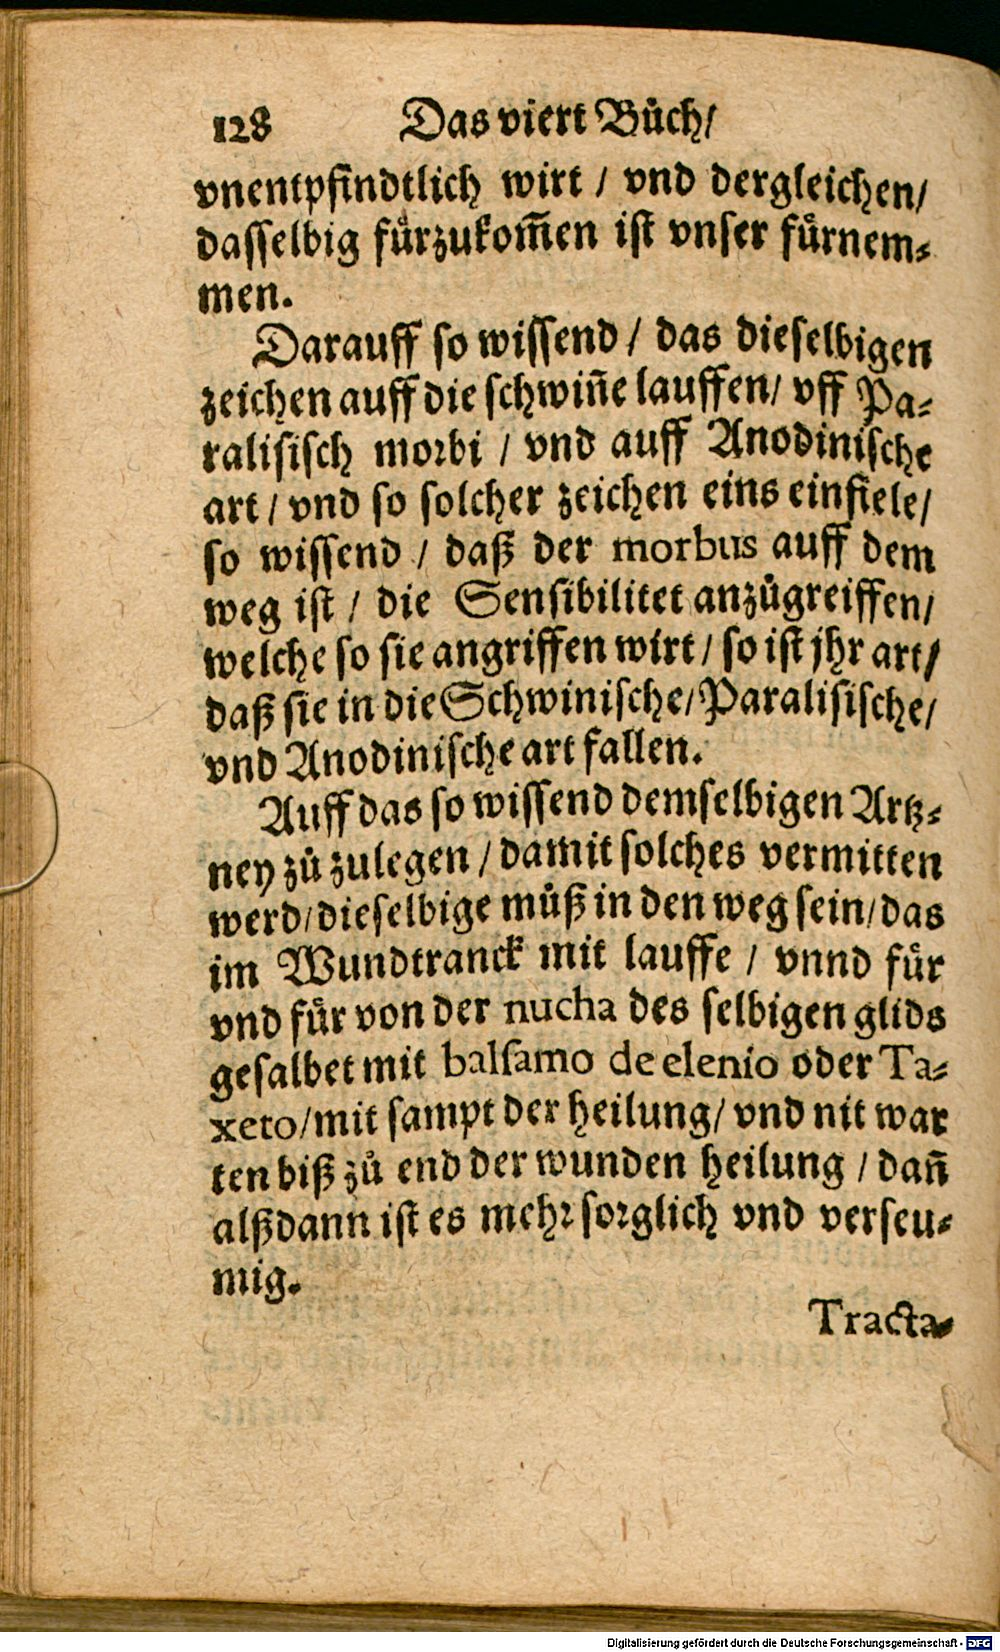 128 Das viert Bůch/
vnentpfindtlich wirt / vnd dergleichen/
dasselbig fürzukom̄en ist vnser fürnem⸗
men.
Darauff so wissend / das dieselbigen
zeichen auff die schwiñe lauffen/ vff Pa⸗
ralisisch morbi / vnd auff Anodinische
art / vnd so solcher zeichen eins einfiele/
so wissend / daß der morbus auff dem
weg ist / die Sensibilitet anzůgreiffen/
welche so sie angriffen wirt / so ist jhr art/
daß sie in die Schwinische/ Paralisische/
vnd Anodinische art fallen.
Auff das so wissend demselbigen Artz⸗
ney zů zulegen / damit solches vermitten
werd/ dieselbige můß in den weg sein/ das
im Wundtranck mit lauffe / vnnd für
vnd für von der nucha des selbigen glids
gesalbet mit balsamo de elenio oder Ta⸗
xeto/ mit sampt der heilung/ vnd nit war
ten biß zů end der wunden heilung / dañ
alßdann ist es mehr sorglich vnd verseu⸗
mig.
Tracta⸗
Digitalisierung gefördert durch die Deutsche Forschungsgemeinschaft - DFG